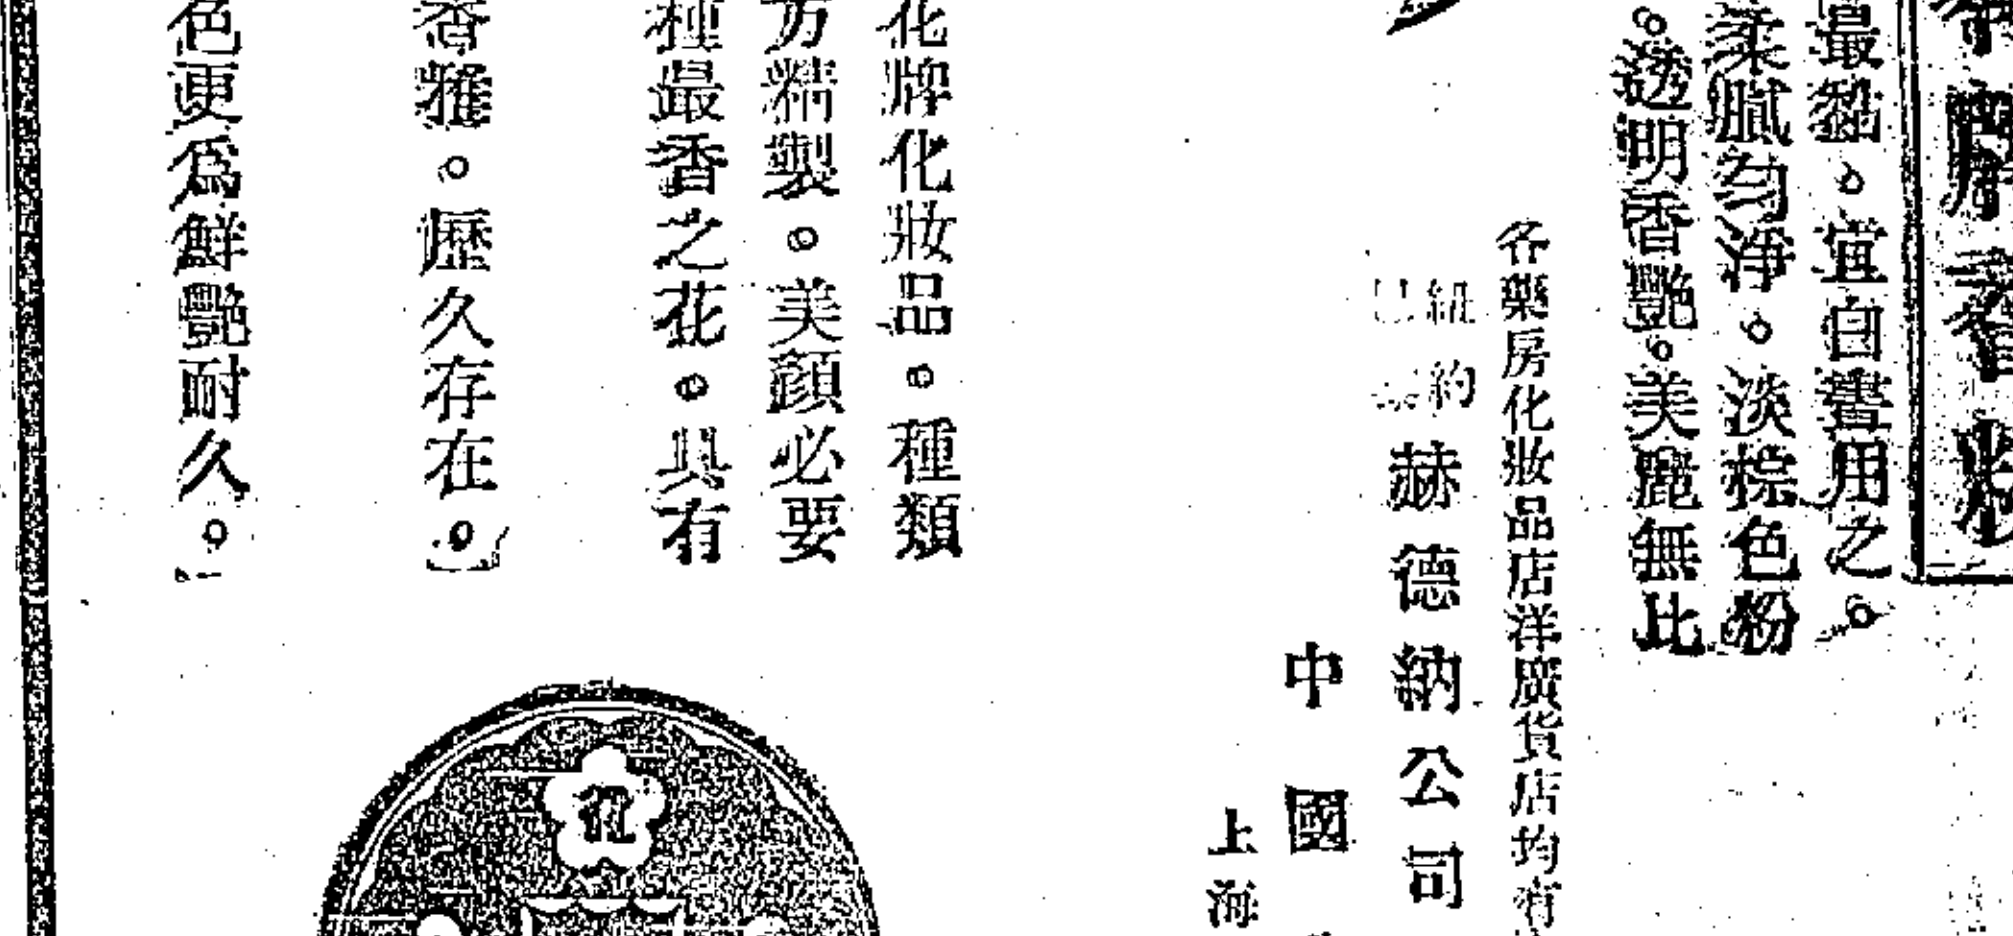 最黏。宜白晝用之。
柔膩勻淨。淡棕色粉
。透明香艷。美麗無比
各藥房化妝品店洋廣貨店均有
紐約
赫德納公司
中國
上海
花牌化妝品。種類
方精製。美顏必要
種最香之花。具有
香雅。歷久存在。
色更為鮮艷耐久。